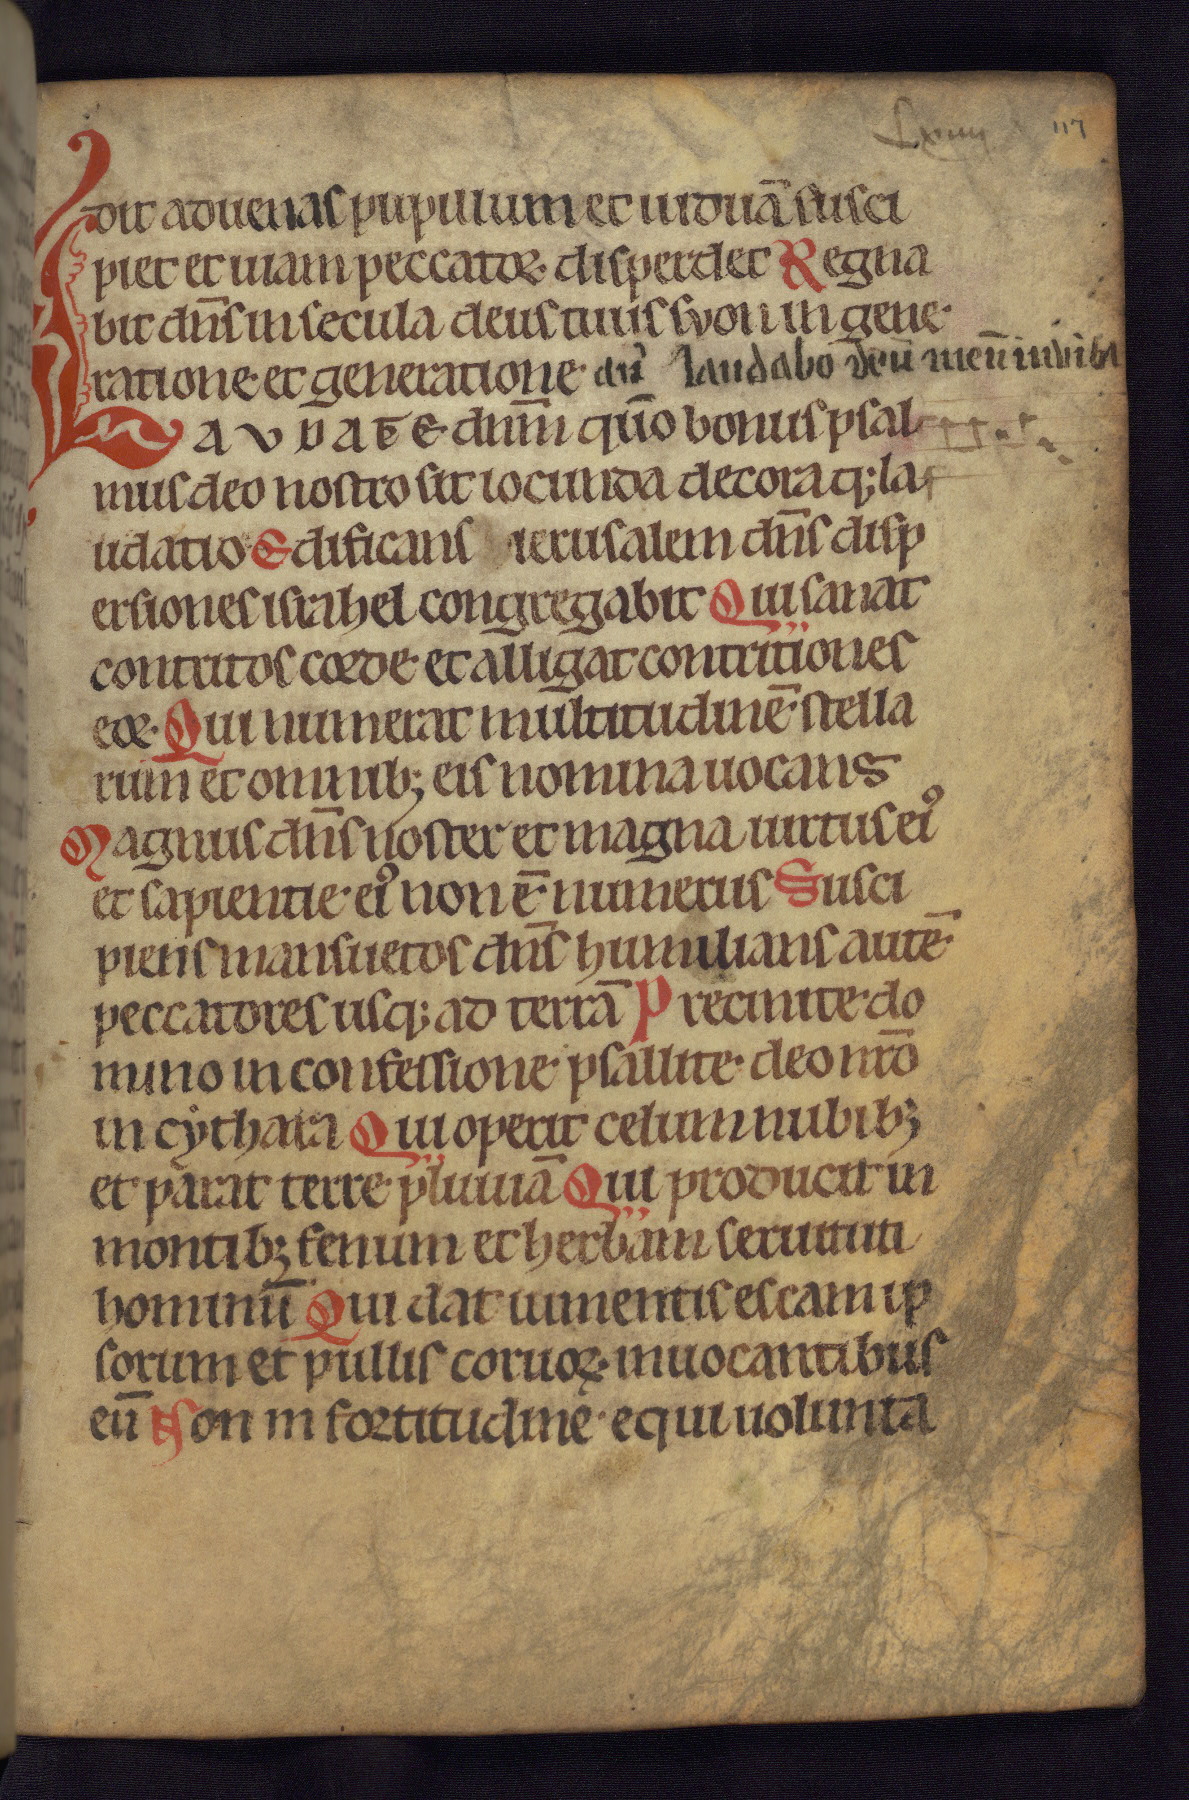 117
dit aduenas pupillum et uiduā susci
piet et uiam peccatoꝝ disperdet Regna
bit dn̄s in secula deus tuus syon in gene
ratione et generatione an̄ laudabo deū meū in uita
LAVDATE dn̄m qm̄o bonus psal
mus deo nostro sit iocunda decoraq; la
udatio Edificans ierusalem dn̄s disp
ersiones israhel congregabit Qui sanat
contritos corde et alligat contritiones
eoꝝ Qui numerat multitudinē stella
rum et omnib; eis nomina uocans
Magnus dn̄s noster et magna uirtus eiꝰ
et sapientie eiꝰ non ē numerus Susci
piens mansuetos dn̄s humilians autē
peccatores usq; ad terrā Precinite do
mino in confessione psallite deo nr̄o
in cythara Qui operit celum nubib;
et parat terre pluuiā Qui producit in
montib; fenum et herbam seruituti
hominū Qui dat iumentis escam ip
sorum et pullis coruoꝝ inuocantibus
eū Non in fortitudine equi uolunta